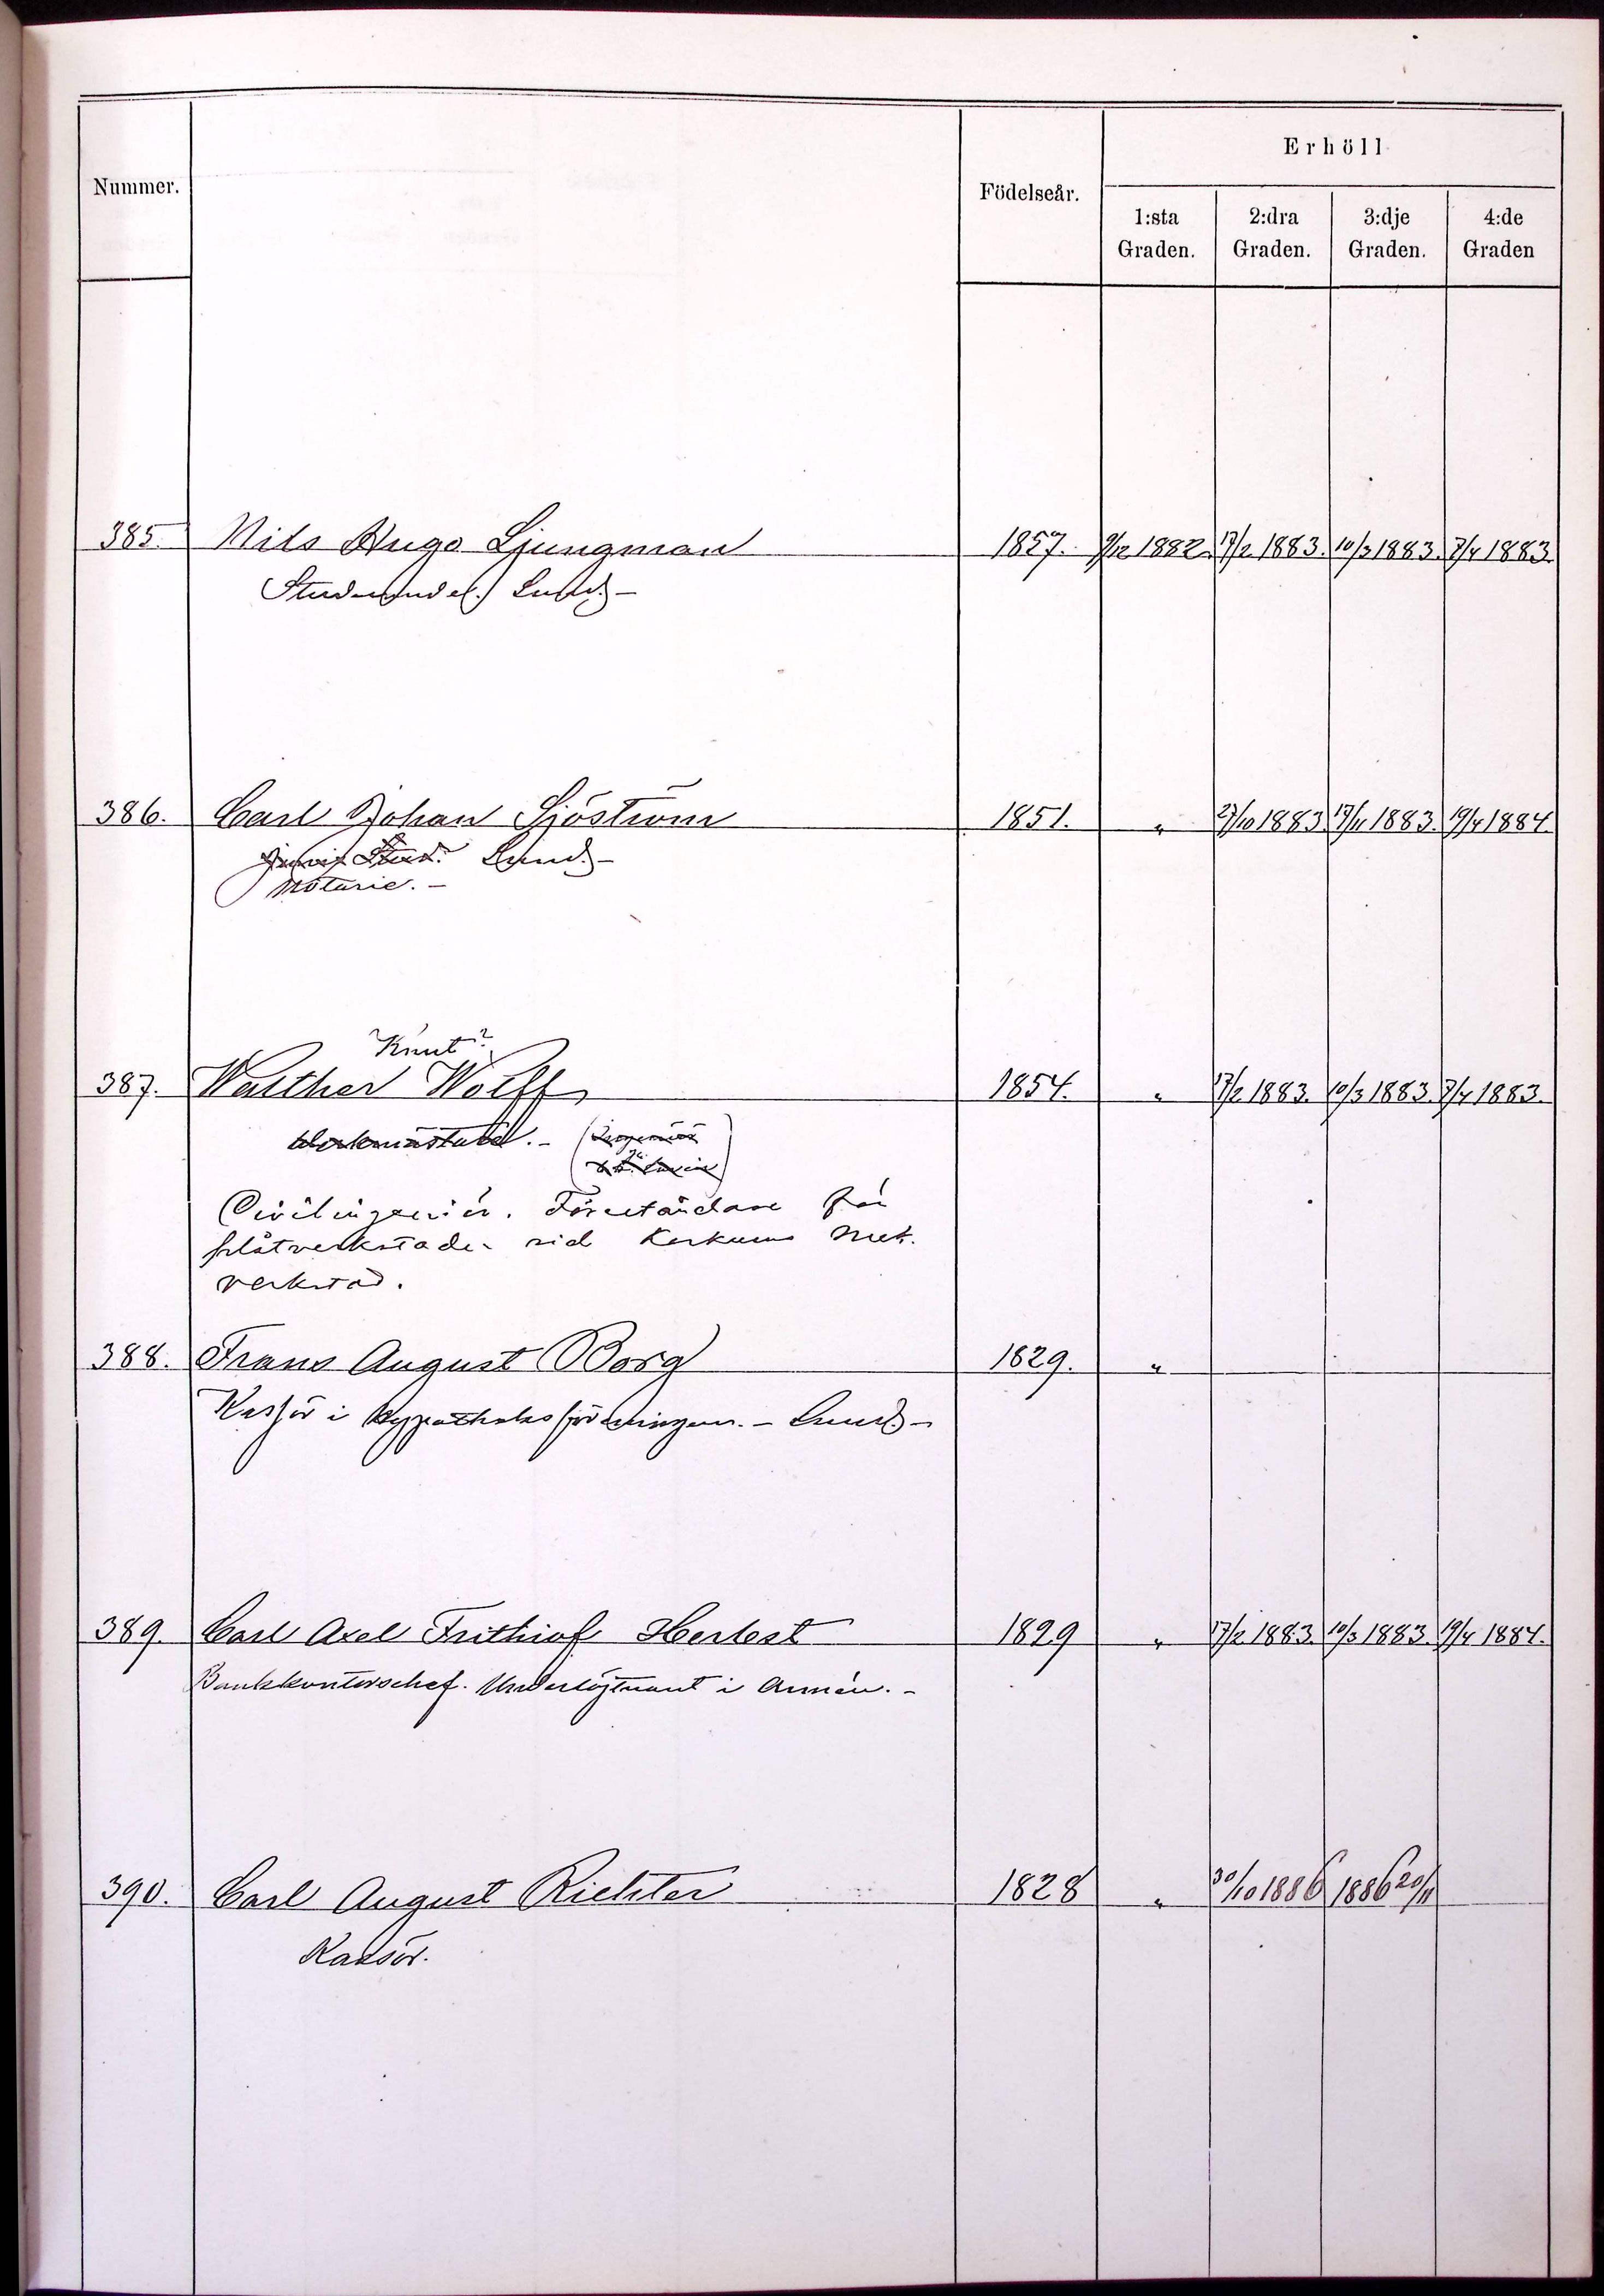 Erhöll
Nummer. Födelseår. 1:sta Graden. 2:dra Graden. 3:dje Graden. 4:de Graden
385. Nils Hugo Ljungman 1857. 9/12 1882. 17/2 1883. 10/3 1883. 7/4 1883.
Studerande. Lund.-
386. Carl Johan Sjöström 1851. " 27/10 1883 17/11 1883. 19/4 1884.
Stud. Lund.-
Notarie.-
"Knut"?
387. Walther Wolff 1854. " 17/2 1883. 10/3 1883. 7/4 1883.
Werkmästare.- (Ingeniör
Civilingeniör. Föreståndare för
plåtverkstaden vid Kockums Mek.
verkstad.
388. Frans August Borg 1829. "
Kassör i Hypotheksföreningen.- Lund.-
389. Carl Axel Frithiof Herbst 1829 " 17/2 1883. 10/3 1883. 19/4 1884.
Bankkontorschef. Underlöjtnant i Armén.-
390. Carl August Richter 1828 " 30/10 1886 1886 20/11
Kassör.